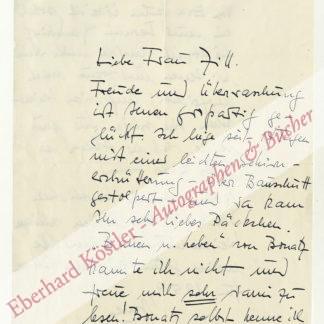 Liebe Frau Zill.
Freude und Überraschung
ist Ihnen großartig ge-
glückt. Ich liege seit Tagen
mit einer leichten Gehirn-
erschütterung – über Bauschutt
gestolpert – und da kam
Ihr sehr liebes Päckchen.
"Leben u. bauen" von Bonatz
kannte ich nicht und
freue mich sehr darin zu
lesen! Bonatz selbst kenne ich
Eberhard Köstler - Autographen & Bücher